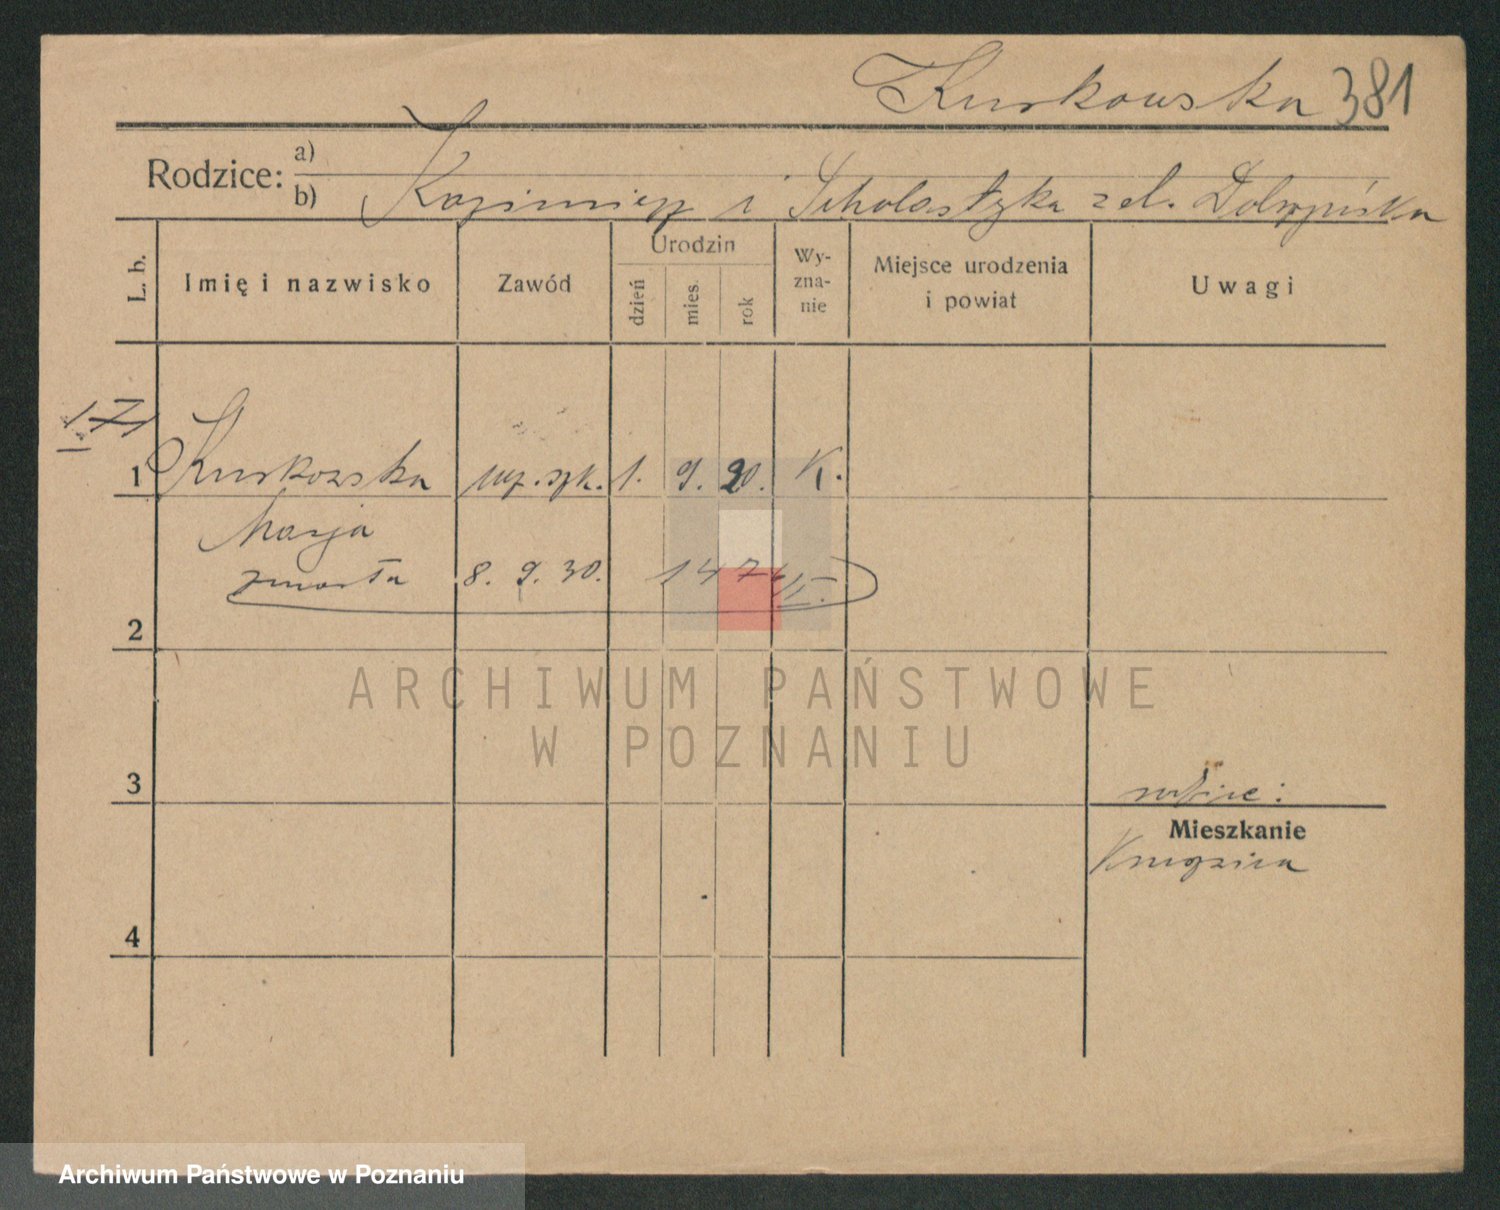 Kurkowska 381
Rodzice: a)
b) Kazimierz i Scholastyka zd. Dobrzyńska
L. b.
Imię i nazwisko
Zawód
Urodzin
dzień
mies.
rok
Wy-
zna-
nie
Miejsce urodzenia
i powiat
Uwagi
1 Kurkowska ucz. szk. 1. 9. 20. K.
Marja
zmarła 8. 9. 30.
2
ARCHIWUM PAŃSTWOWE
W POZNANIU
3
rodzice:
Mieszkanie
4
Archiwum Państwowe w Poznaniu